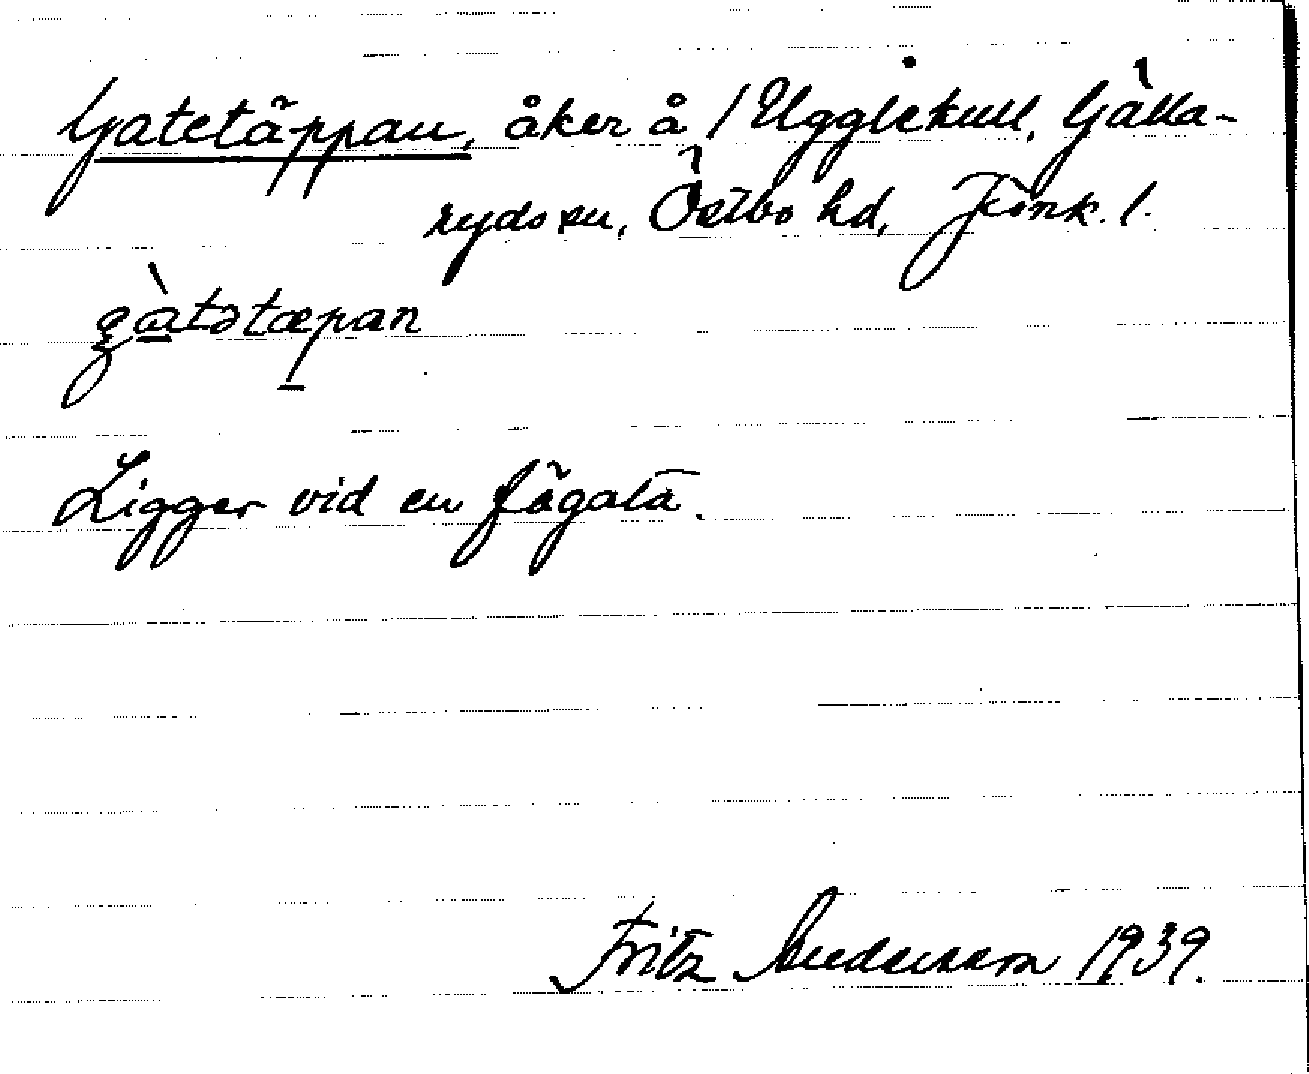 Gatetäppan, åker å 1 Ugglekull, Gälla-
ryds sn, Östbo hd, Jönk. l.
gàtətæpan
Ligger vid en fägata.
Fritz Andersson 1939.